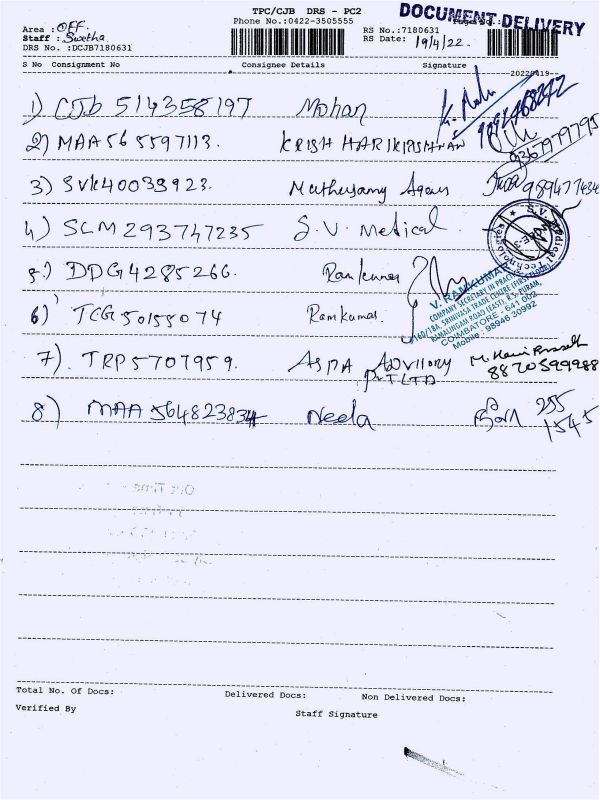 TPC/CJB DRS - PC2
DOCUMENT DELIVERY
Area : OFF
Phone No.:0422-3505555
Staff : Swetha
RS No.:7180631
DRS No. :DCJB7180631
RS Date: 19/4/22.
S No Consignment No Consignee Details Signature
20220419--
1) CJb 514358197 Mohan
2) MAA 565597113. KRISH HARIKRISHNAN 9367979795
3) SVK40039923. Muthusamy
4) SLM 293747235 S.V. Medical
S.V. Medical Technologies
5) DDG4285266. Ramkumar
V. RAMKUMAR
COMPANY SECRETARY IN PRACTICE
SRINIVASA TRADE CENTRE (FIRST FLOOR)
RAMALINGAM ROAD (EAST), R.S. PURAM,
COIMBATORE - 641 002
Mobile : 98946 30992
6) TCG 50155074 Ramkumar.
7) TRP5707959. ASPA ADVISORY PVT LTD 8870599988
8) MAA 564823834 Neela 255
1545
Total No. Of Docs: Delivered Docs: Non Delivered Docs:
Verified By
Staff Signature